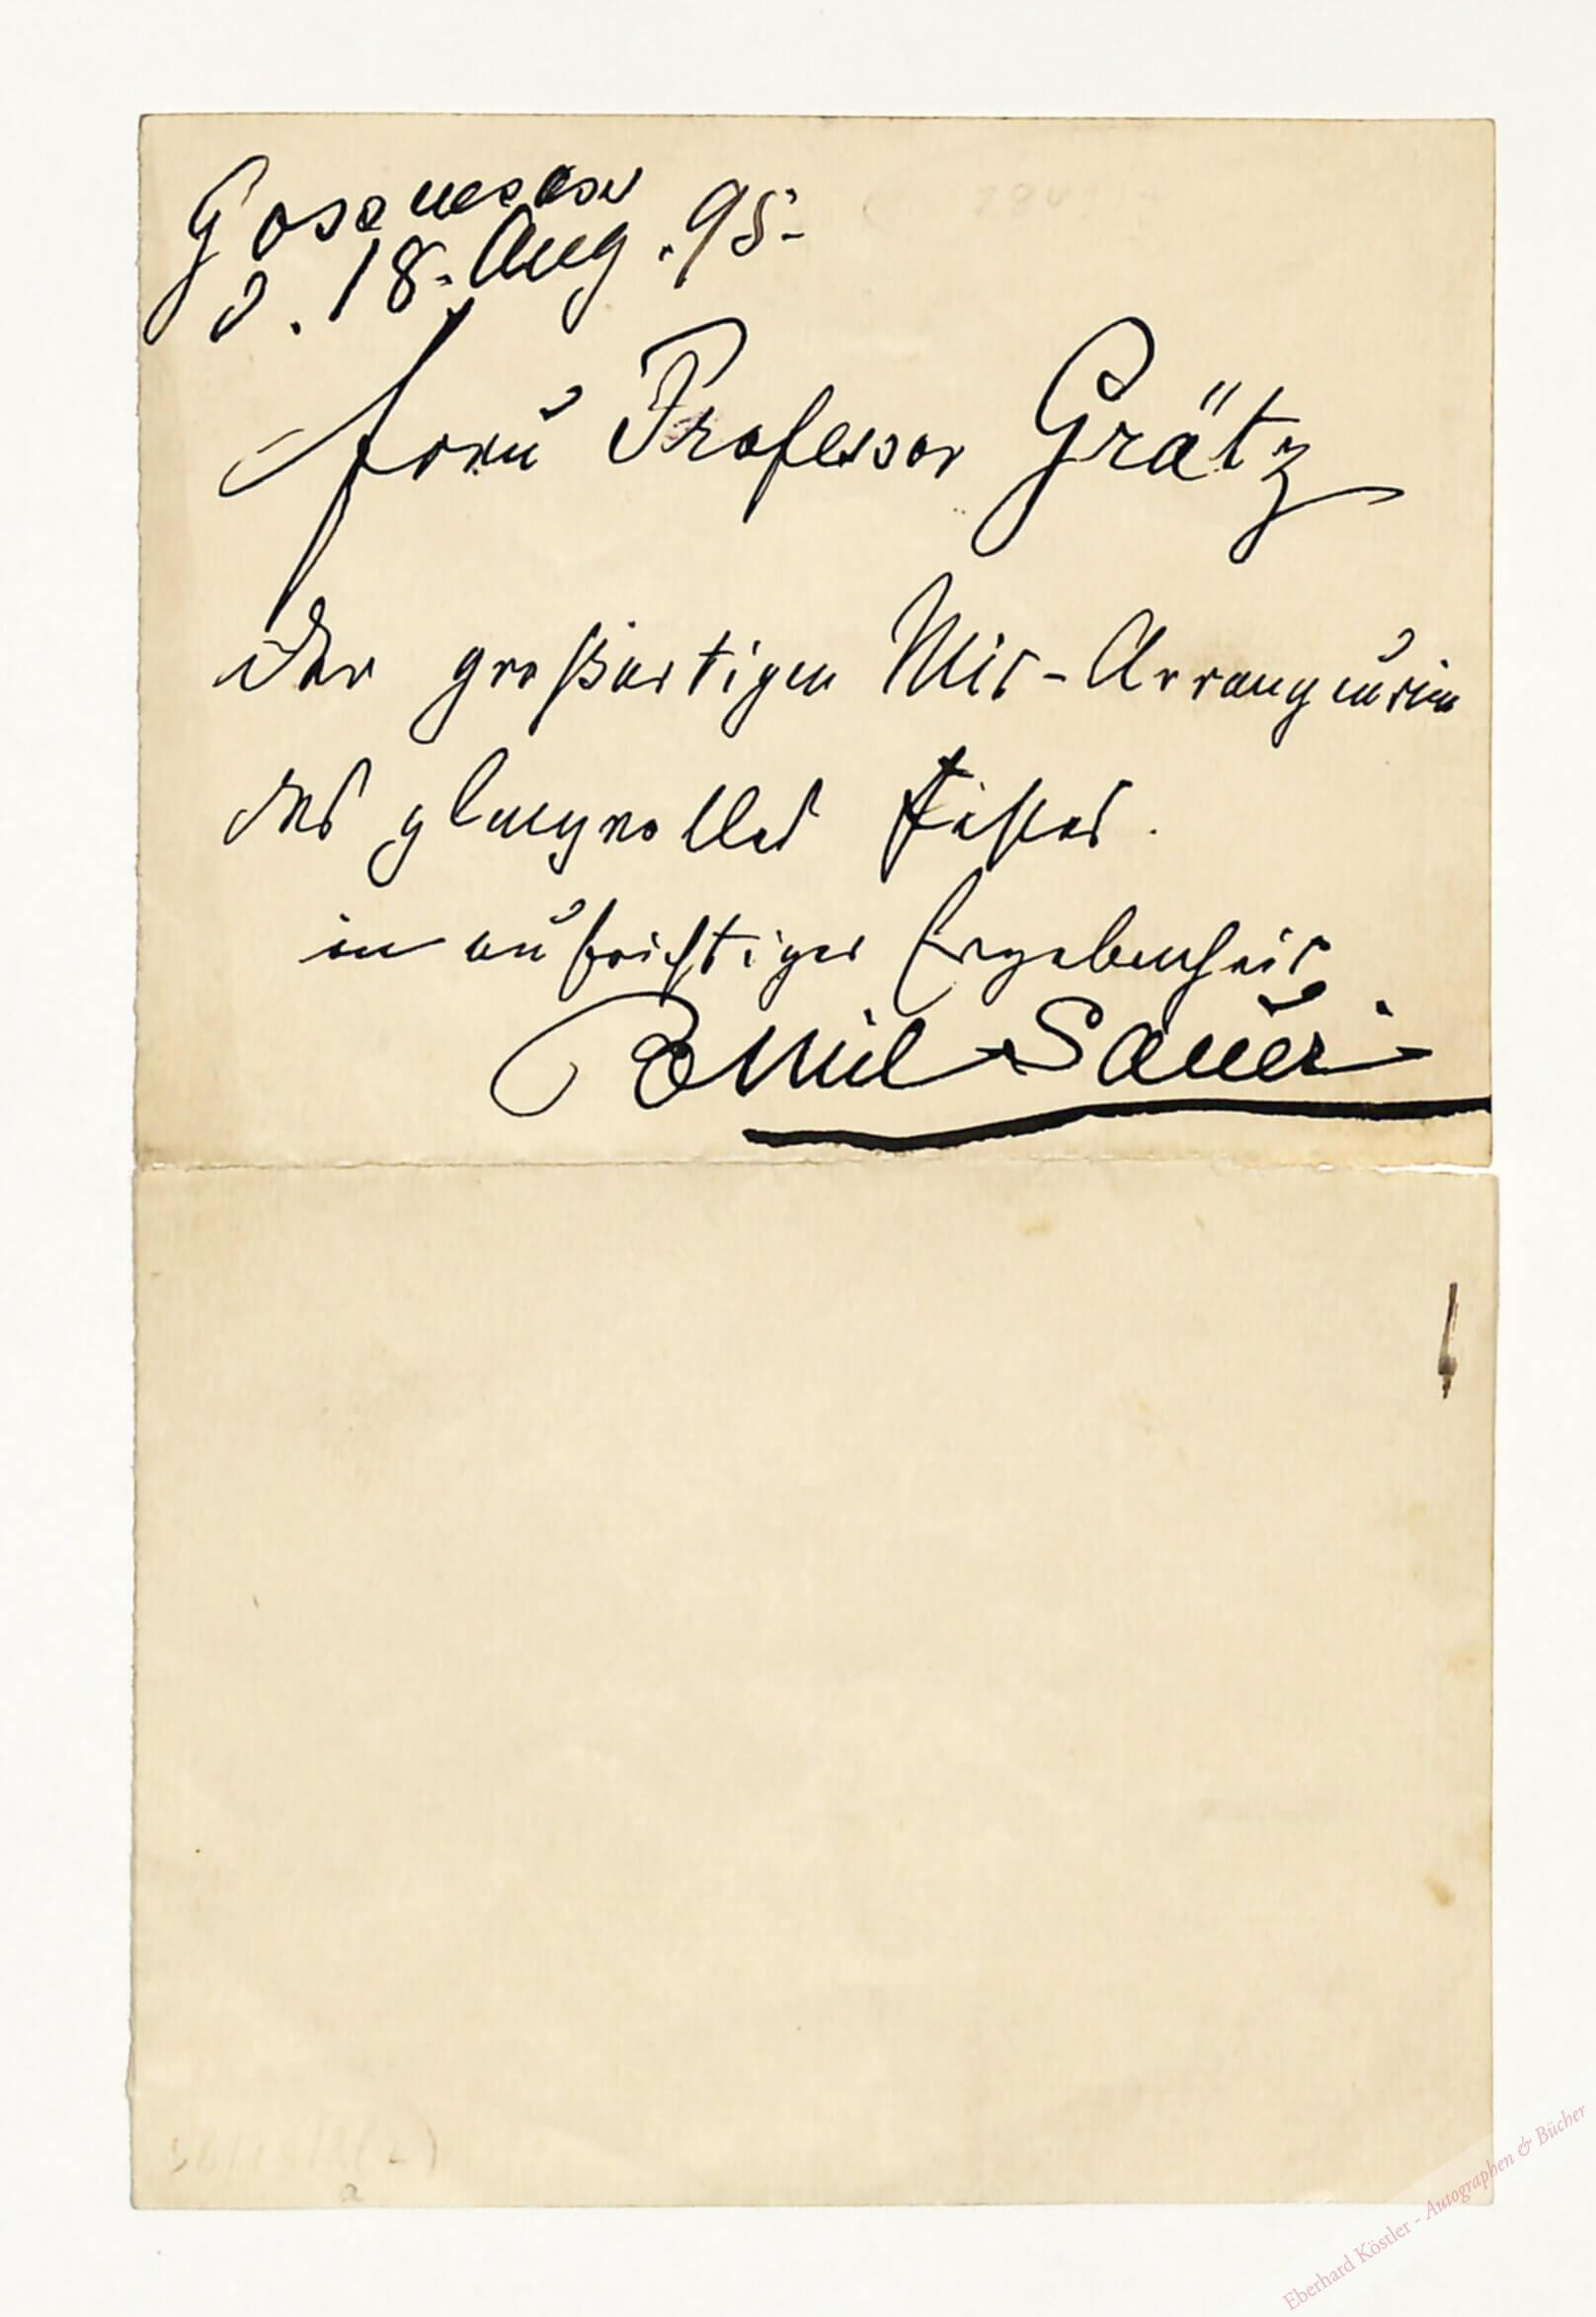 Gossensass
d. 18. Aug. 95.
Frau Professor Grätz
der großartigen Mit-Arrangeurin
des glanzvollen Festes.
in aufrichtiger Ergebenheit
Emil Sauer
Eberhard Köstler - Autographen & Bücher